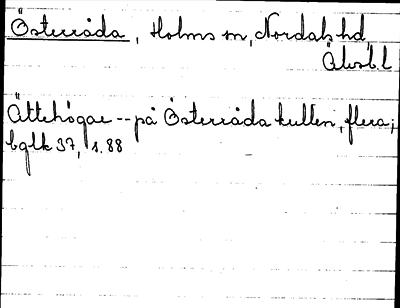 Österråda, Holms sn, Nordals hd
Älvsb. l
Ättehögar -- på Österråda kullen, flera;
bglk 37, s. 88